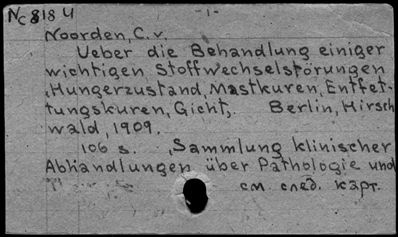 Nc 818 U -1-
Noorden, C. v.
Ueber die Behandlung einiger
wichtigen Stoffwechselstörungen
,Hungerzustand, Mastkuren, Entfet-
tungskuren, Gicht,. Berlin, Hirsch
wald, 1909.
106 s. ,Sammlung klinischer
Abhandlungen über Pathologie und
см. след. карт.